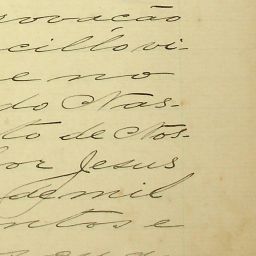 rovação
cillo vi-
e no
do Nas-
to de Nos-
hor Jesus
de mil
entos e